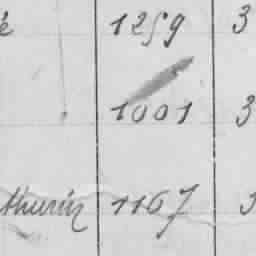 é 1259 3
1001 3
thurin 1167 3